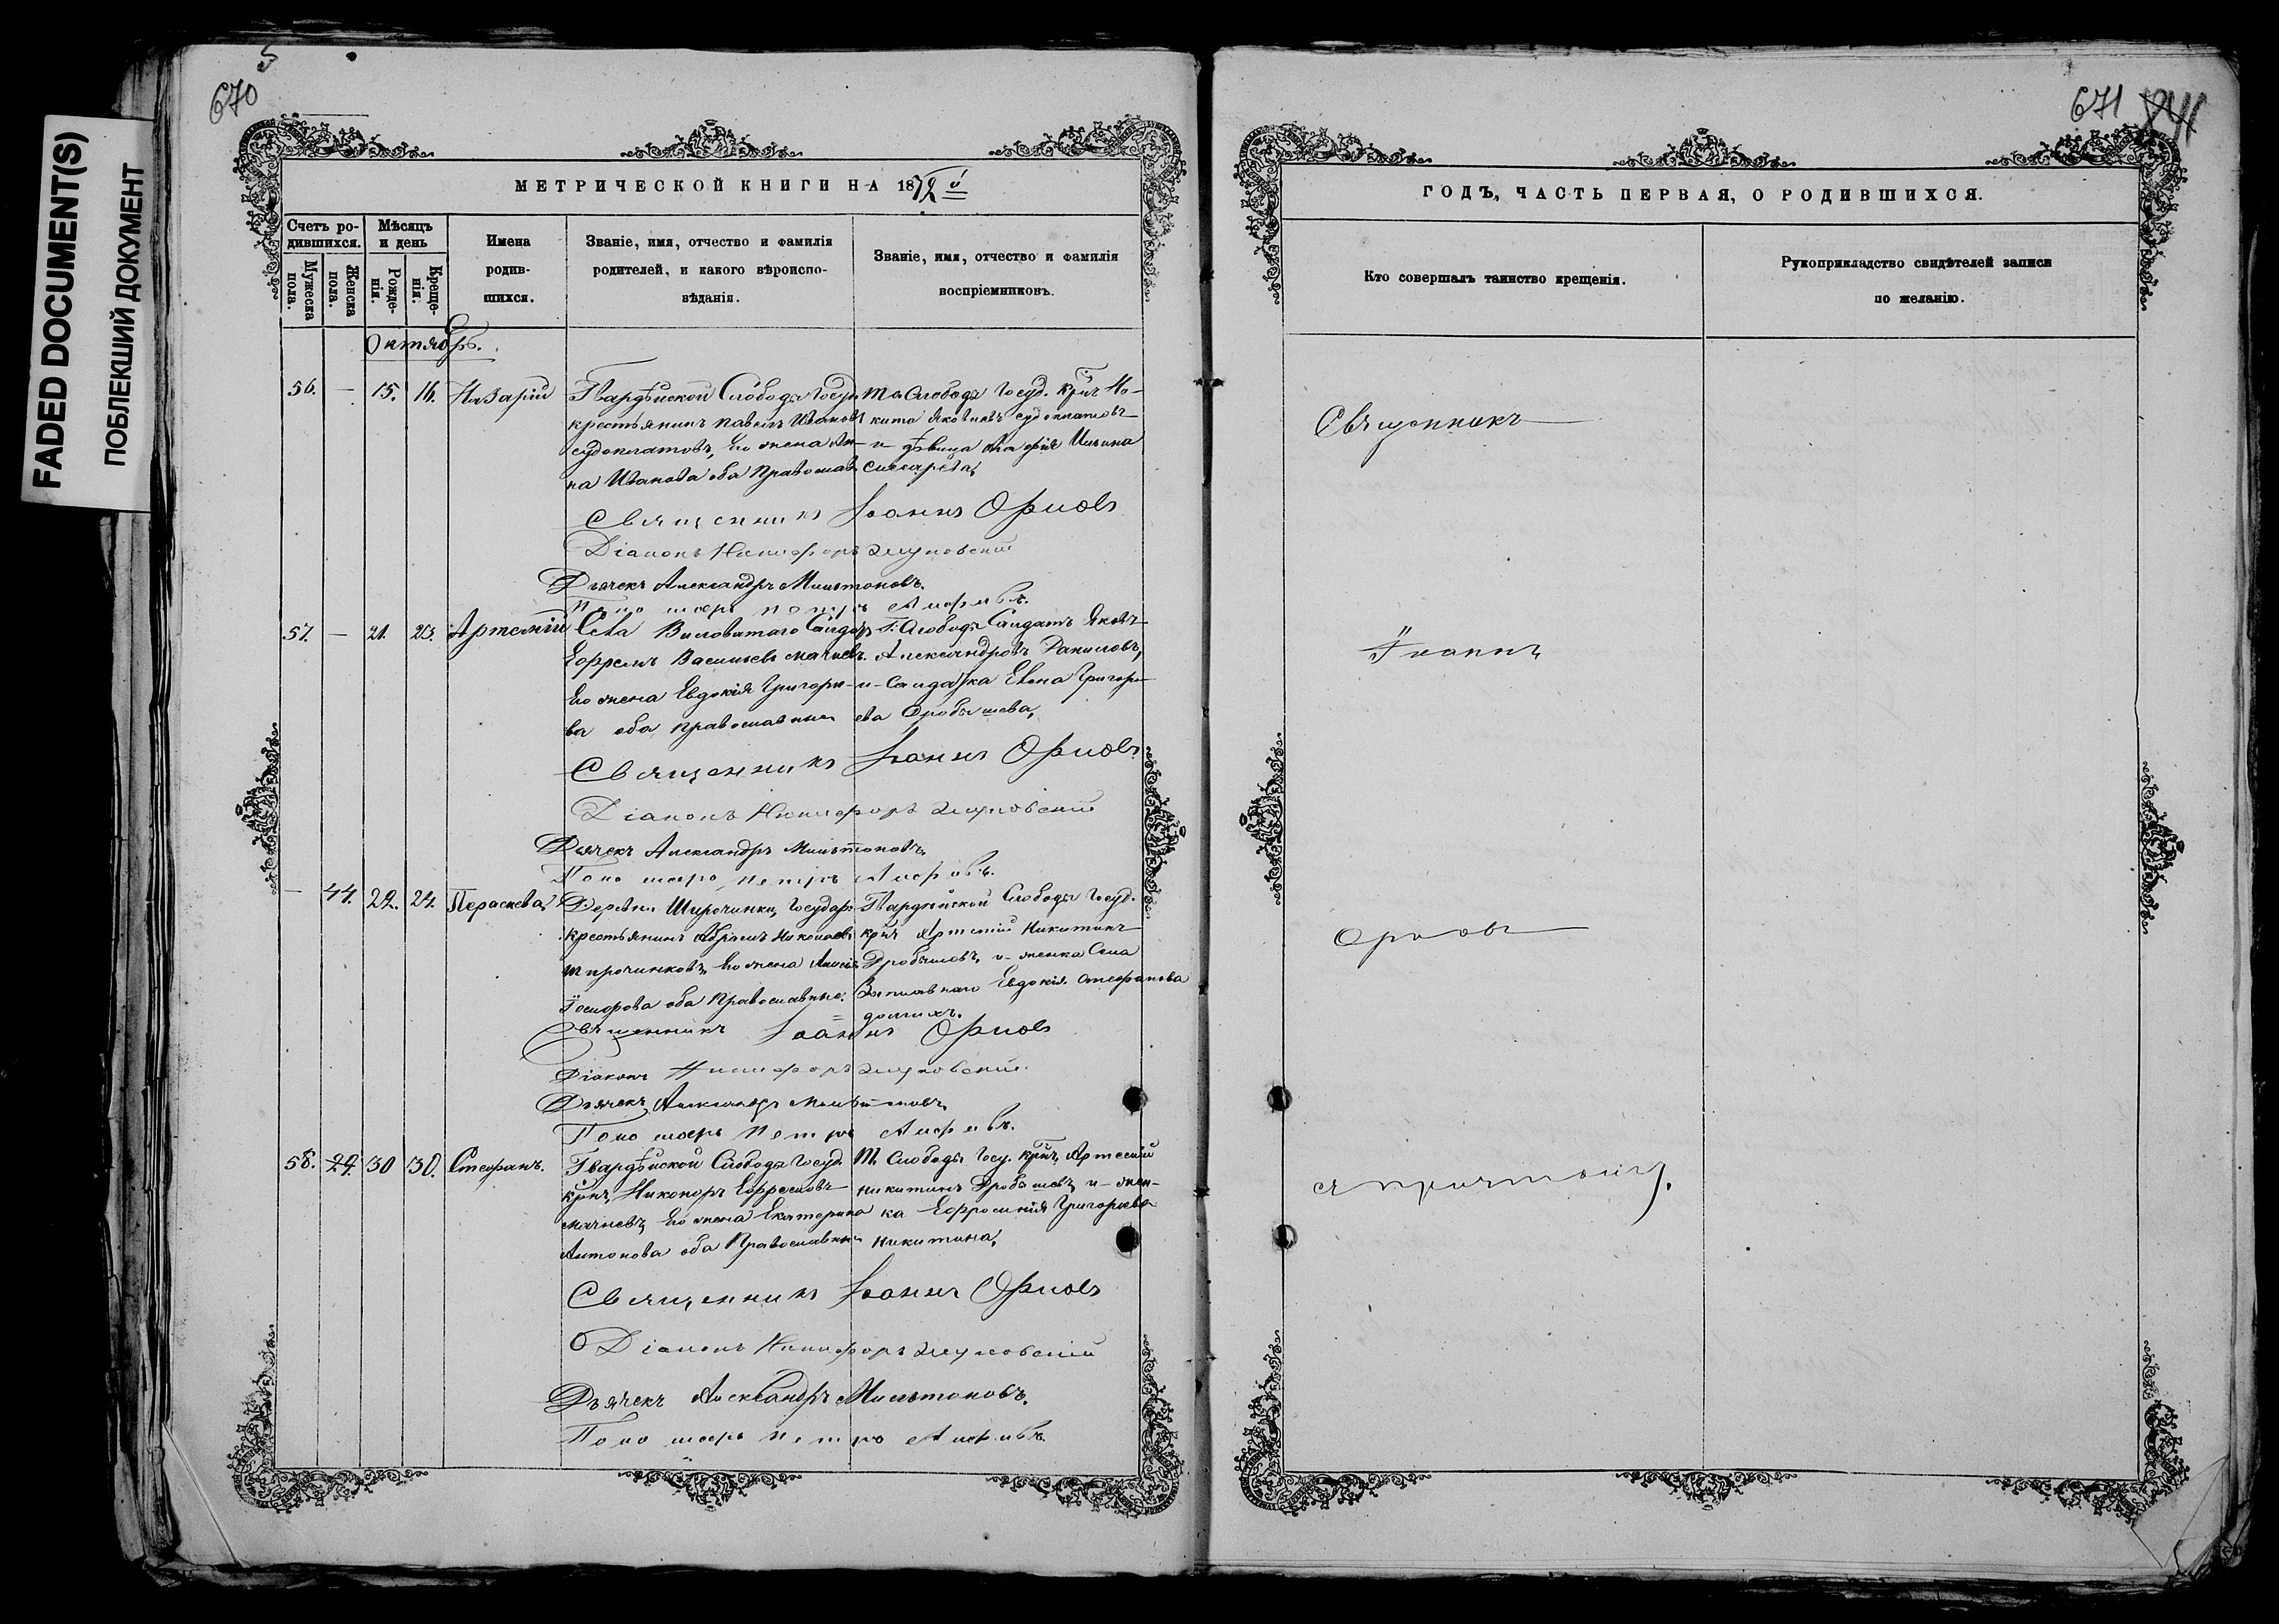 FADED DOCUMENT(S)
ПОБЛЕКШИЙ ДОКУМЕНТ
670
МЕТРИЧЕСКОЙ КНИГИ НА 1872й
Счетъ родившихся.
Мужеска пола.
Женска пола.
Мѣсяцъ и день
Рожденія.
Крещенія.
Имена родившихся.
Званіе, имя, отчество и фамилія родителей, и какого вѣроисповѣданія.
Званіе, имя, отчество и фамилія воспріемниковъ.
Октябрь.
56. — 15. 16. Назарій
Гвардѣйской Слободы Госуд.
крестьянинъ Павелъ Ивановъ
Судоплатовъ, Его жена Ан-
на Иванова оба Православ
Та Слободы Госуд. Крѣ Ни-
кита Яковлевъ Судоплатовъ
и дѣвица Марфа Ильина
Слесарева,
Священникъ Іоаннъ Орловъ
Діаконъ Никифоръ
Дьячекъ Александръ Мильтоновъ.
Пономарь Петръ
57. — 21. 23. Артемій
Села Виловатаго Солдатъ
Ефремъ Васильевъ Мачневъ.
Его жена Евдокія Григорь-
ва оба православны
Г. Слободы Солдатъ Яковъ
Александровъ Даниловъ,
и Солдатка Елена Григорь
ева Дробышева,
Священникъ Іоаннъ Орловъ
Діаконъ Никифоръ
Дьячекъ Александръ Мильтоновъ
Пономарь Петръ
— 44. 22. 24. Параскева,
Деревни Широчинки, Государ
крестьянинъ Абрамъ Николаевъ
Широчинковъ, Его жена
Іосифова оба Православные.
Гвардѣйской Слободы Госуд.
крѣ Артемій Никитинъ
Дробышевъ, и женка Села
Заплавнаго Евдокія Стефанова
Долгихъ.
Священникъ Іоаннъ Орловъ
Діаконъ Никифоръ
Дьячекъ Александръ Мильтоновъ
Пономарь Петръ
58. 29. 30 30. Стефанъ.
Гвардѣйской Слободы Госуд
Крѣ Никоноръ Ефремовъ
Мачневъ, Его жена Екатерина
Антонова оба Православны
Т. Слободы Госу. Крѣ Артемій
Никитинъ Дробышевъ и жен-
ка Ефросинія Григорьева
Никитина,
Священникъ Іоаннъ Орловъ
Діаконъ Никифоръ
Дьячекъ Александръ Мильтоновъ.
Пономарь Петръ
671
ГОДЪ, ЧАСТЬ ПЕРВАЯ, О РОДИВШИХСЯ.
Кто совершалъ таинство крещенія.
Рукоприкладство свидѣтелей записи по желанію.
Священникъ
Іоаннъ
Орловъ
съ причтомъ.